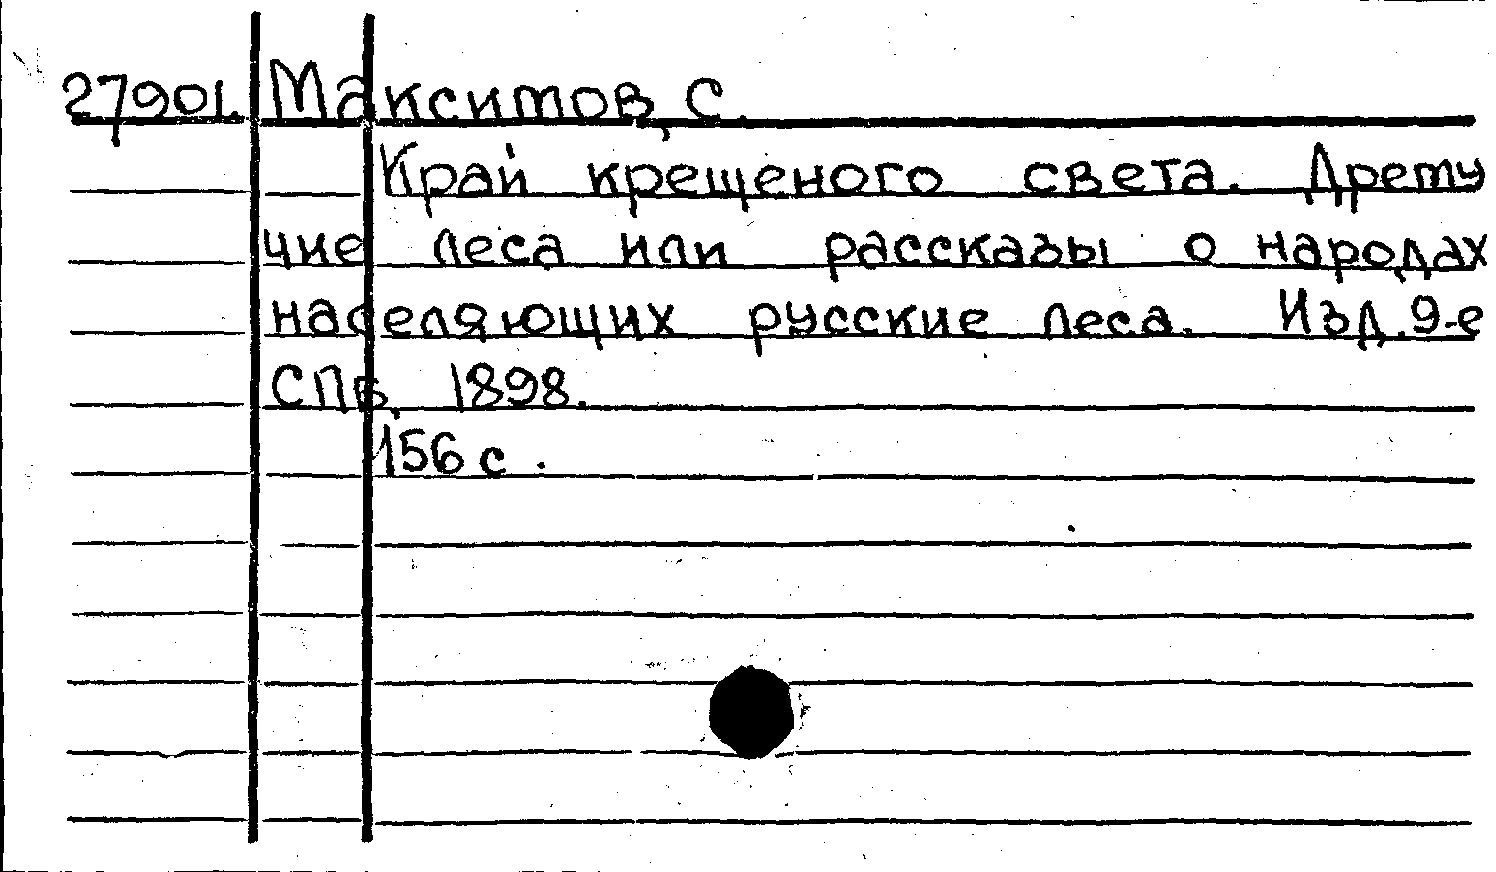 27901. Максимов, С.
Край крещеного света. Дрему
чие леса или рассказы о народах
населяющих русские леса. Изд. 9-е
СПб, 1898.
156 с.